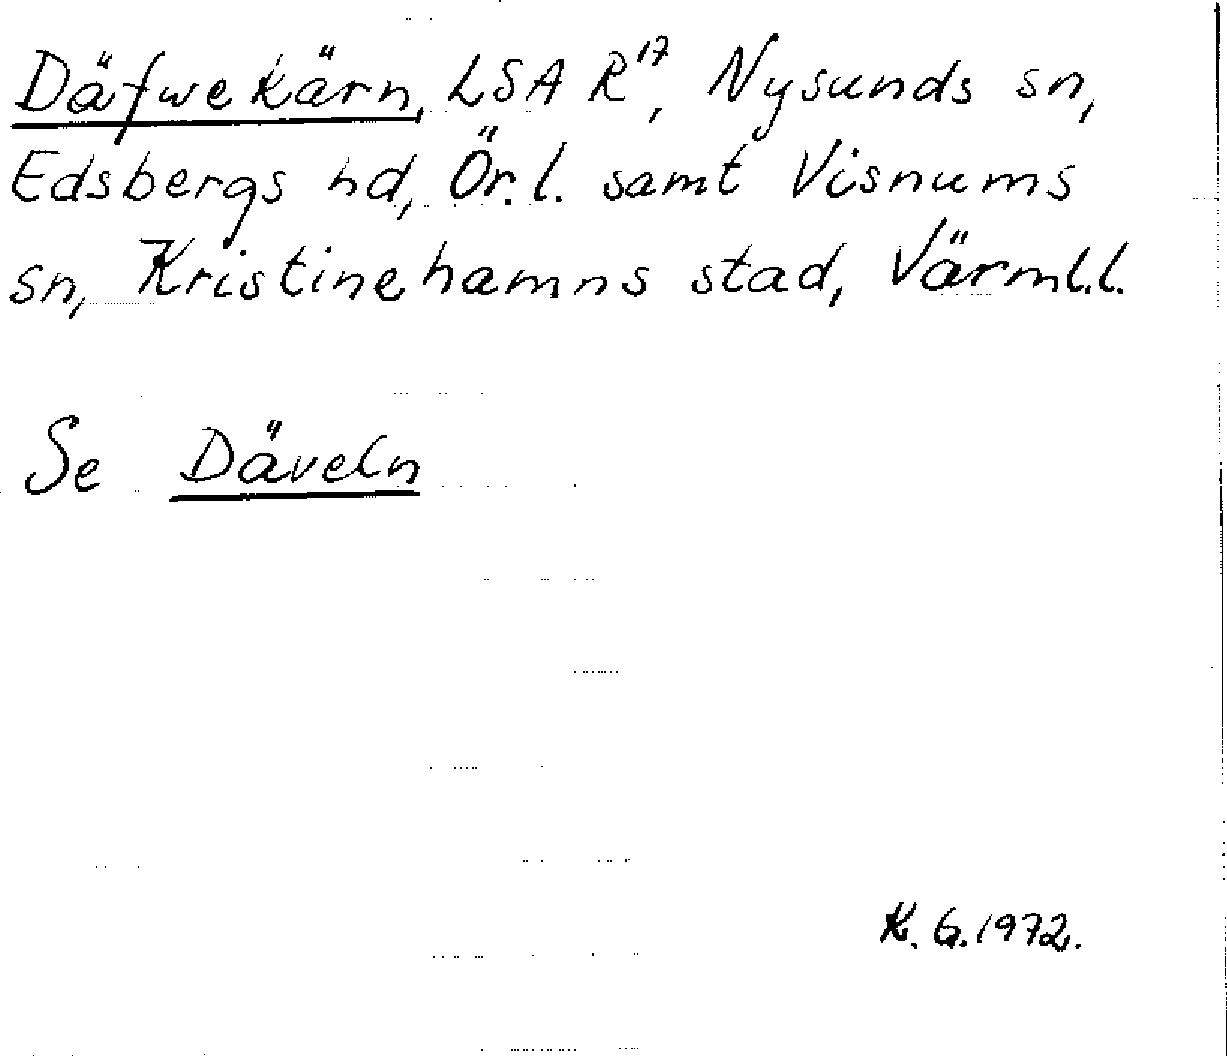 Däfwekärn, LSA R¹⁷, Nysunds sn,
Edsbergs hd, Ör.l. samt Visnums
sn, Kristinehamns stad, Värml.l.
Se Däveln
K. G. 1972.